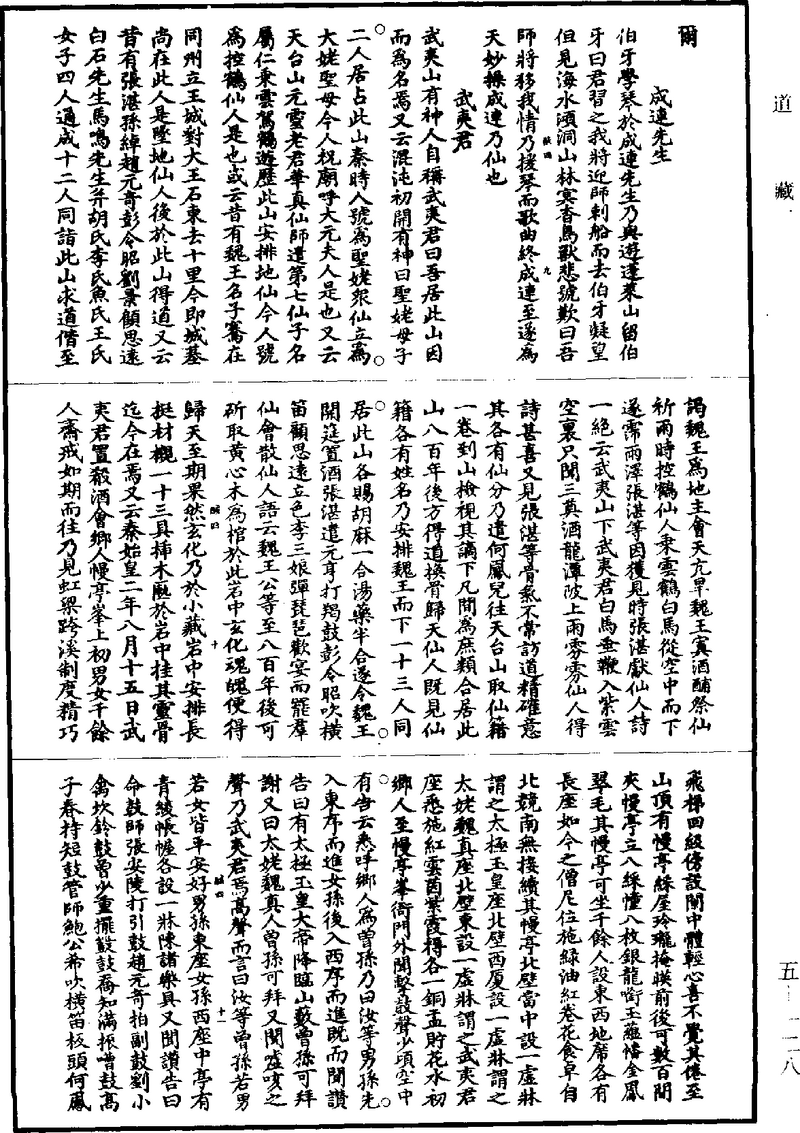 道藏
五—一二八
爾
成連先生
伯牙學琴於成連先生乃與遊蓬萊山留伯
牙曰君習之我將迎師刺船而去伯牙凝望
但見海水澒洞山林冥杳鳥獸悲號歎曰吾
師將移我情乃援琴而歌曲終成連至遂為
天妙操成連乃仙也
武夷君
武夷山有神人自稱武夷君曰吾居此山因
而為名焉又云混沌初開有神曰聖姥母子
二人居占此山秦時人號為聖姥眾仙立為
大姥聖母今人祝廟呼大元夫人是也又云
天台山元靈老君華真仙師遣第七仙子名
屬仁乘雲駕鶴遊歷此山安排地仙今人號
為控鶴仙人是也或云昔有魏王名子騫在
同州立王城對大王石東去十里今即城基
尚在此人是墜地仙人後於此山得道又云
昔有張湛孫綽趙元奇彭令昭劉景顧思遠
白石先生馬鳴先生并胡氏李氏魚氏王氏
女子四人通成十二人同詣此山求道偕至
謁魏王為地主會天亢旱魏王寘酒酺祭仙
祈雨時控鶴仙人乘雲鶴白馬從空中而下
遂霈雨澤張湛等因獲見時張湛獻仙人詩
一絕云武夷山下武夷君白馬垂鞭入紫雲
空裏只聞三奠酒龍潭陂上雨雰雰仙人得
詩甚喜又見張湛等骨氣不常訪道精確意
其各有仙分乃遣何鳳兒往天台山取仙籍
一卷到山檢視其謫下凡間為庶類合居此
山八百年後方得道換骨歸天仙人既見仙
籍各有姓名乃安排魏王而下一十三人同
居此山各賜胡麻一合湯藥半合遂令魏王
開筵置酒張湛遣元亨打羯鼓彭令昭吹橫
笛顧思遠立色李三娘彈琵琶歡宴而罷群
仙會散仙人語云魏王公等至八百年後可
斫取黃心木為棺於此岩中玄化魂魄便得
歸天至期果然玄化乃於小藏岩中安排長
挺材櫬一十三具插木㕓於岩中挂其靈骨
迄今在焉又云秦始皇二年八月十五日武
夷君置殽酒會鄉人幔亭峯上初男女千餘
人齋戒如期而往乃見虹梁跨溪制度精巧
飛梯四級傍設闌中體輕心喜不覺其倦至
山頂有幔亭綵屋玲瓏掩映前後可數百間
夾幔亭立八綵幢八枚銀龍銜玉蘊幡金鳳
翠毛其幔亭可坐千餘人設東西地席各有
長座如今之僧尼位施綠油紅卷花食卓自
北競南無接續其幔亭北壁當中設一虛牀
謂之太極玉皇座北壁西廈設一虛牀謂之
太姥魏真座北壁東設一虛牀謂之武夷君
座悉施紅雲茵紫霞褥各一銅盂貯花水初
鄉人至幔亭峯衙門外聞擊鼓聲少頃空中
有告云悉呼鄉人為曾孫乃曰汝等男孫先
入東序而進女孫後入西序而進既而聞讚
告曰有太極玉皇大帝降臨山藪曾孫可拜
謝又曰太姥魏真人曾孫可拜又聞噓唆之
聲乃武夷君焉高聲而言曰汝等曾孫若男
若女皆平安好男孫東座女孫西座中亭有
青綾帳幄各設一牀陳諸樂具又聞讚告曰
命鼓師張安陵打引鼓趙元奇拍副鼓劉小
禽坎鈴鼓曾少童擺鼗鼓喬知滿振嘈鼓高
子春持短鼓管師鮑公希吹橫笛板頭何鳳